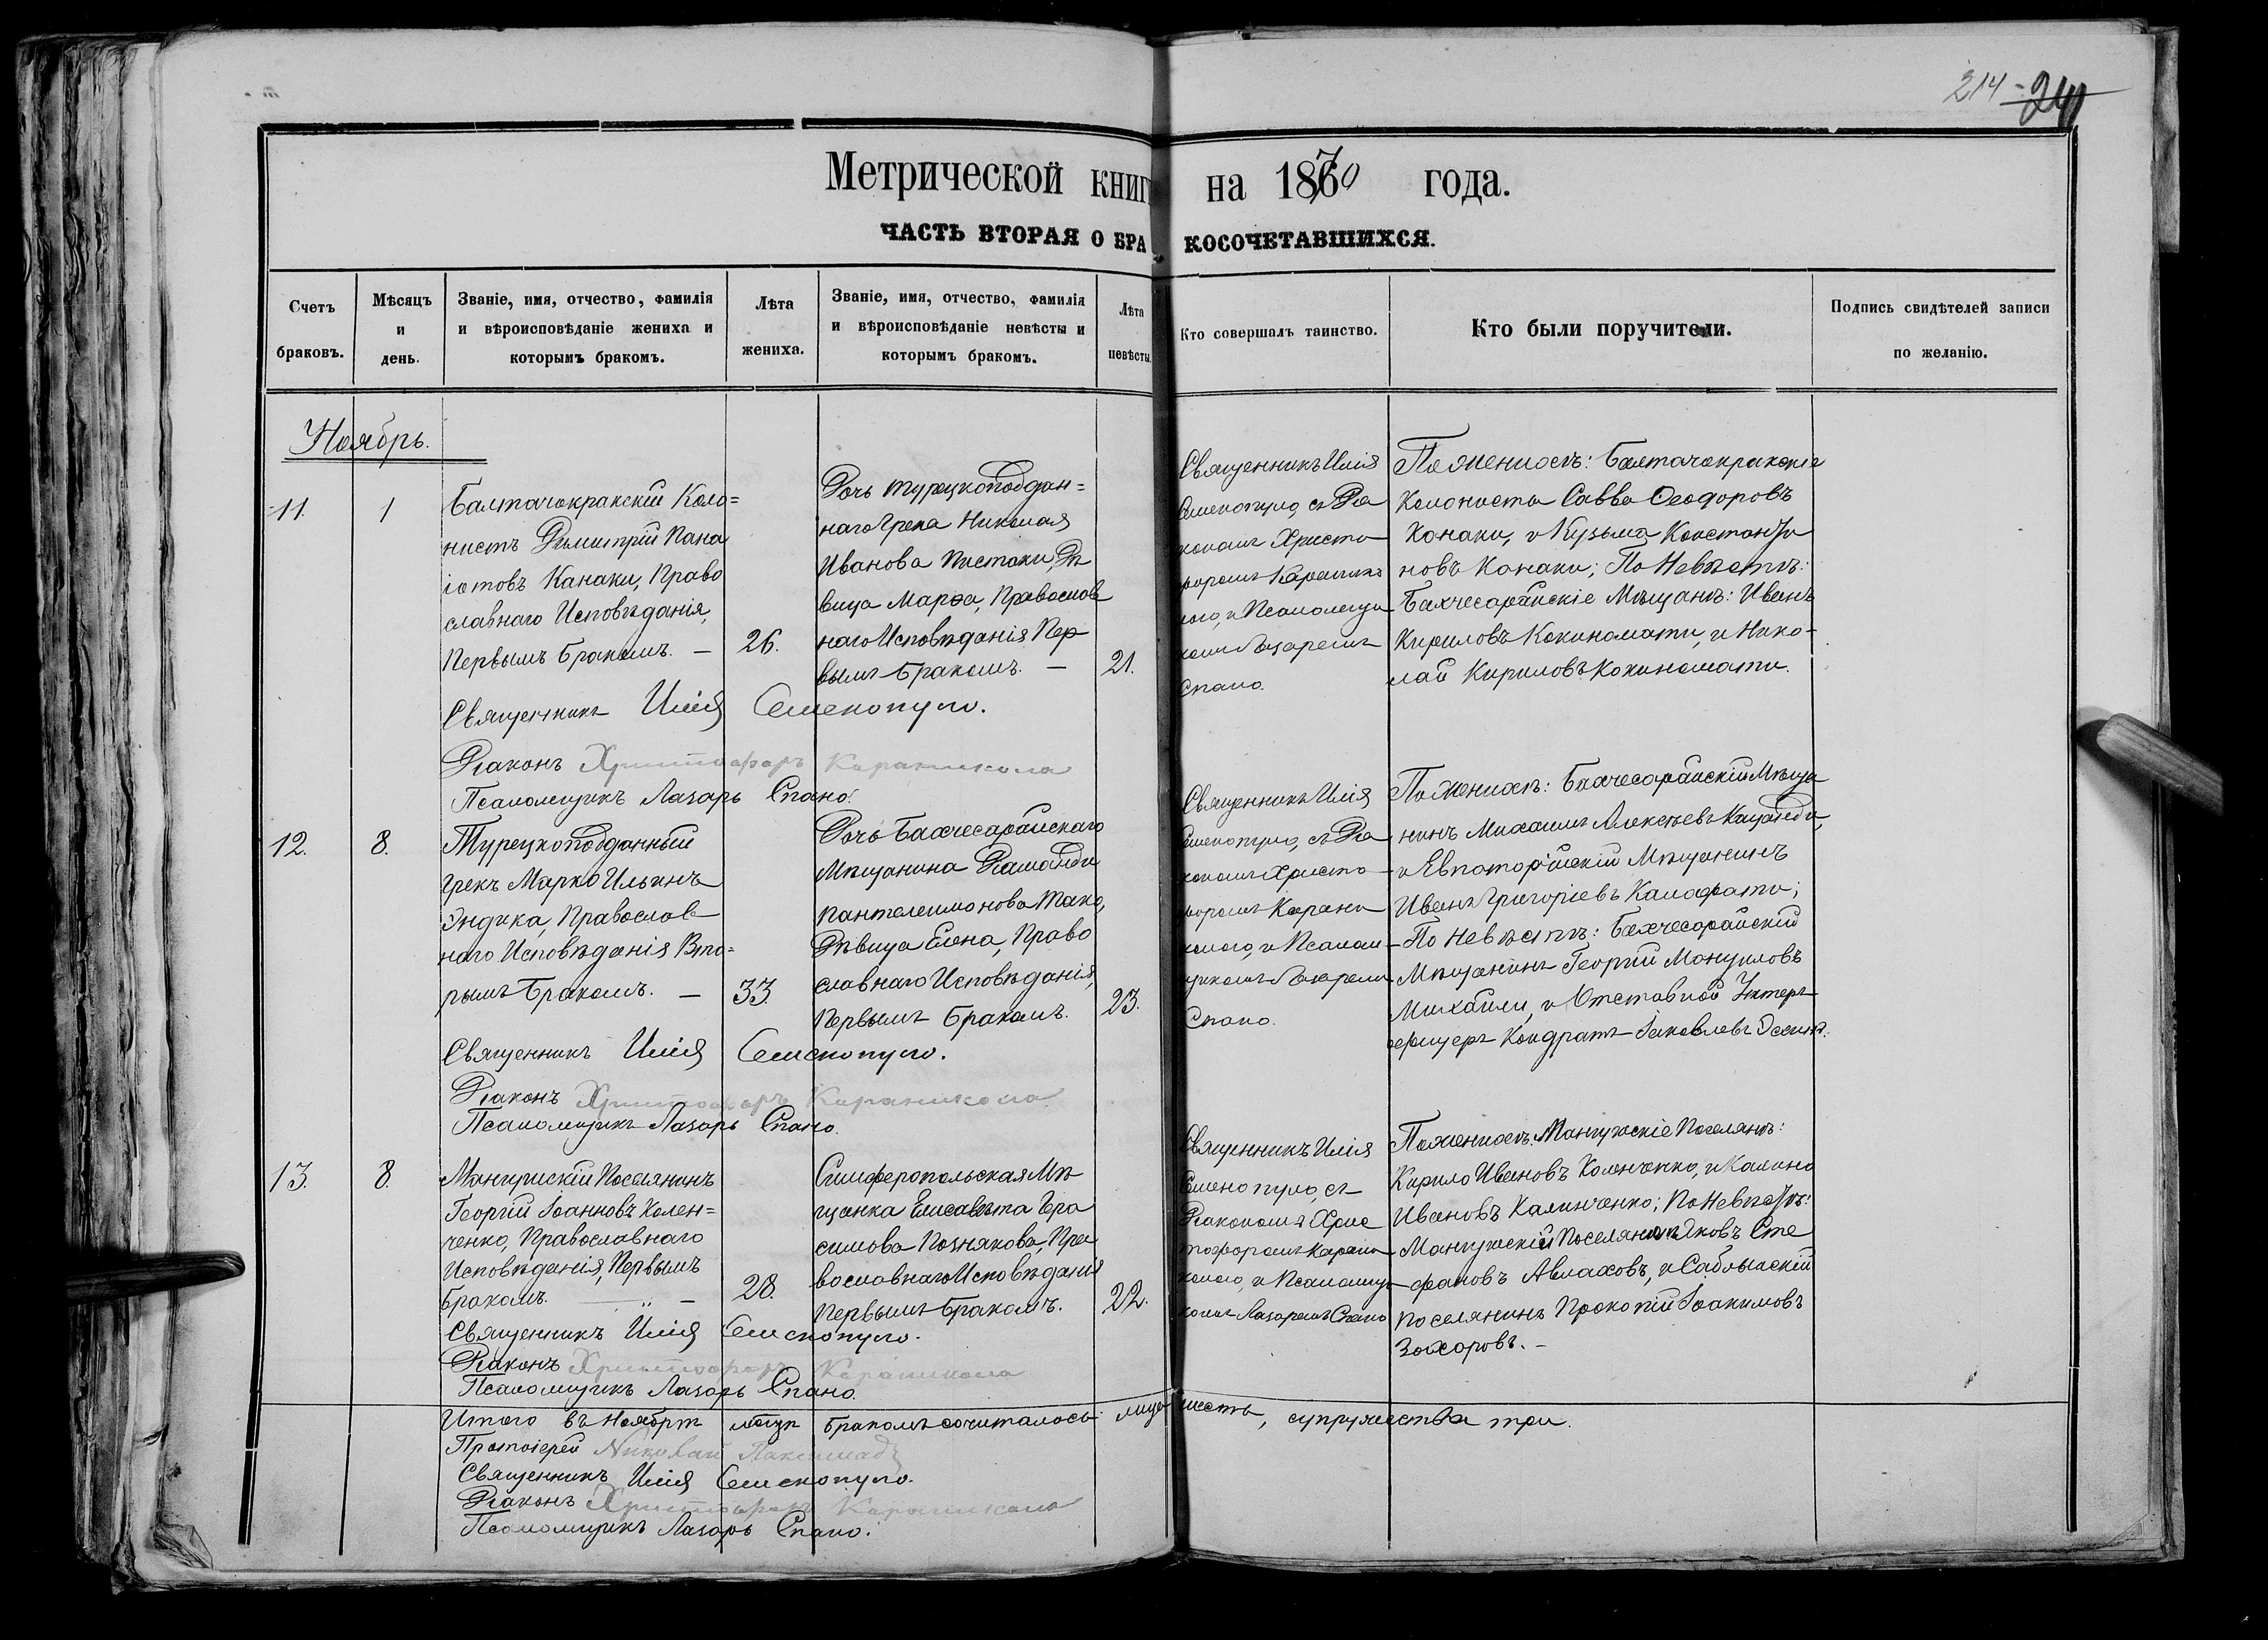 214 - 241
Метрической книг на 1870 года.
ЧАСТЬ ВТОРАЯ О БРА КОСОЧЕТАВШИХСЯ.
Счетъ
браковъ.
Мѣсяцъ
и
день.
Званіе, имя, отчество, фамилія
и вѣроисповѣданіе жениха и
которымъ бракомъ.
Лѣта
жениха.
Званіе, имя, отчество, фамилія
и вѣроисповѣданіе невѣсты и
которымъ бракомъ.
Лѣта
невѣсты.
Кто совершалъ таинство.
Кто были поручители.
Подпись свидѣтелей записи
по желанію.
Ноябрь.
11.
1
Балтачокракскій Коло=
нистъ Димитрій Пана
іотовъ Канаки, Право
славнаго Исповѣданія,
Первымъ Бракомъ. —
26.
Дочь турецкоподдан=
наго Грека Николая
Иванова Пистоки, Дѣ
вица Марѳа, Православ
наго Исповѣданія Пер
вымъ Бракомъ. —
21.
Священникъ Илія
Семенопуло, съ Діа
кономъ Христо
форомъ Караника
лого, и Псаломщи
комъ Лазаремъ
Спано.
По Женихѣ: Балтачокракскіе
Колонисты Савва Ѳеодоровъ
Конаки, и Кузьма Константи
новъ Конаки; По Невѣстѣ:
Бахчесарайскіе Мѣщанѣ: Иванъ
Кириловъ Кокиномати, и Нико-
лай Кириловъ Кокиномати.
Священникъ Илія Семенопуло.
Діаконъ Христофоръ Караникола
Псаломщикъ Лазарь Спано.
12.
8.
Турецкоподданный
Грекъ Марко Ильинъ
Эндика, Православ
наго Исповѣданія Вто=
рымъ Бракомъ. —
33.
Дочь Бахчесарайскаго
Мѣщанина
Пантелеимонова Тако,
Дѣвица Елена, Право
славнаго Исповѣданія,
Первымъ Бракомъ.
23.
Священникъ Илія
Семенопуло, съ Діа
кономъ Христо
форомъ Карани
колого, и Псалом
щикомъ Лазаремъ
Спано.
По Женихѣ: Бахчесарайскій Мѣща
нинъ Михаилъ Алексѣевъ
и Евпаторійскій Мѣщанинъ
Иванъ Григоріевъ Калафати;
По Невѣстѣ: Бахчесарайскій
Мѣщанинъ Георгій Мануиловъ
Михайли, и Отставной Унтеръ
офицеръ Кондратъ Іаковлевъ
Священникъ Илія Семенопуло.
Діаконъ Христофоръ Караникола
Псаломщикъ Лазарь Спано.
13.
8.
Мангушскій Поселянинъ
Георгій Іоанновъ Кален=
ченко, Православнаго
Исповѣданія, Первымъ
Бракомъ. — „ —
28.
Симферопольская Мѣ
щанка Елисавета Гера
симова Познякова, Пра
вославнаго Исповѣданія
Первымъ Бракомъ.
22.
Священникъ Илія
Семенопуло, съ
Діакономъ Хрис
тофоромъ Карани
колого, и Псаломщи
комъ Лазаремъ Спано
По Женихѣ: Мангушскіе Поселянѣ:
Кирило Ивановъ Каленченко, и Калина
Ивановъ Калинченко; По Невѣстѣ:
Мангушскій Поселянинъ Яковъ Сте
фановъ Авлаховъ, и Саблынскій
Поселянинъ Прокопій Іоакимовъ
Захаровъ. —
Священникъ Илія Семенопуло.
Діаконъ Христофоръ Караникола
Псаломщикъ Лазарь Спано.
Итого въ Ноябрѣ мѣсяцѣ бракомъ сочиталось лицъ шесть, супружества три.
Протоіерей Николай
Священникъ Илія Семенопуло.
Діаконъ Христофоръ Караникола
Псаломщикъ Лазарь Спано.